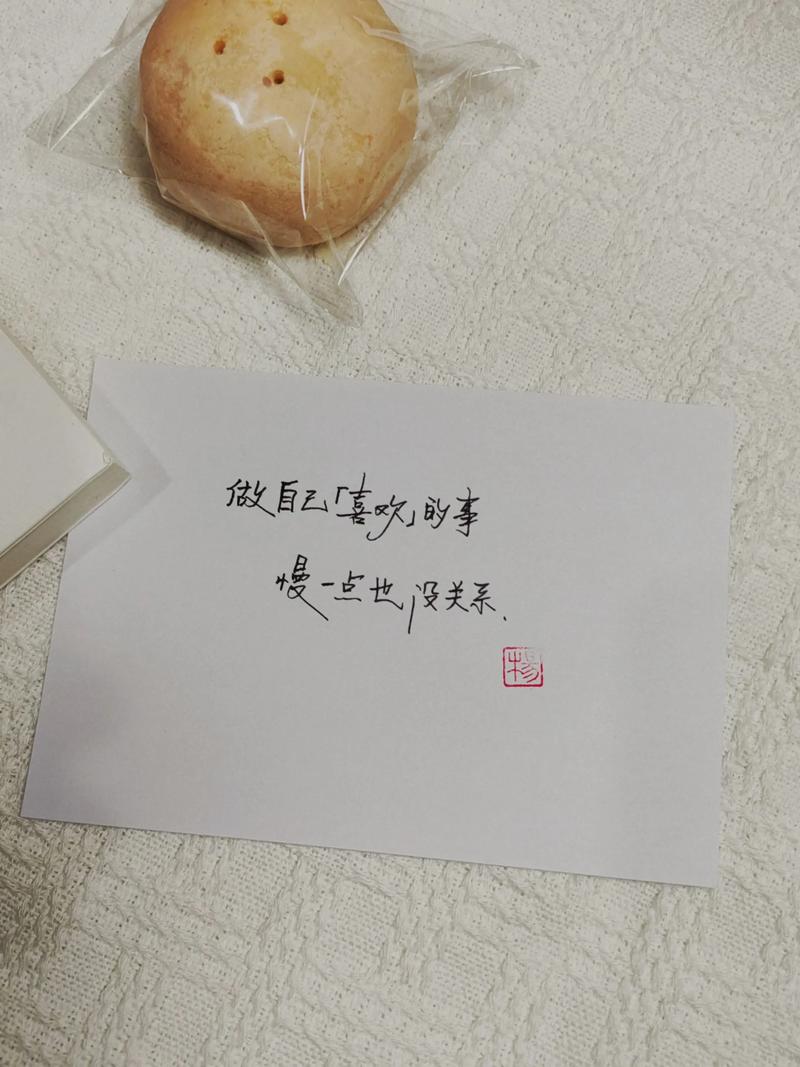 做自己「喜欢」的事
慢一点也没关系.
楊